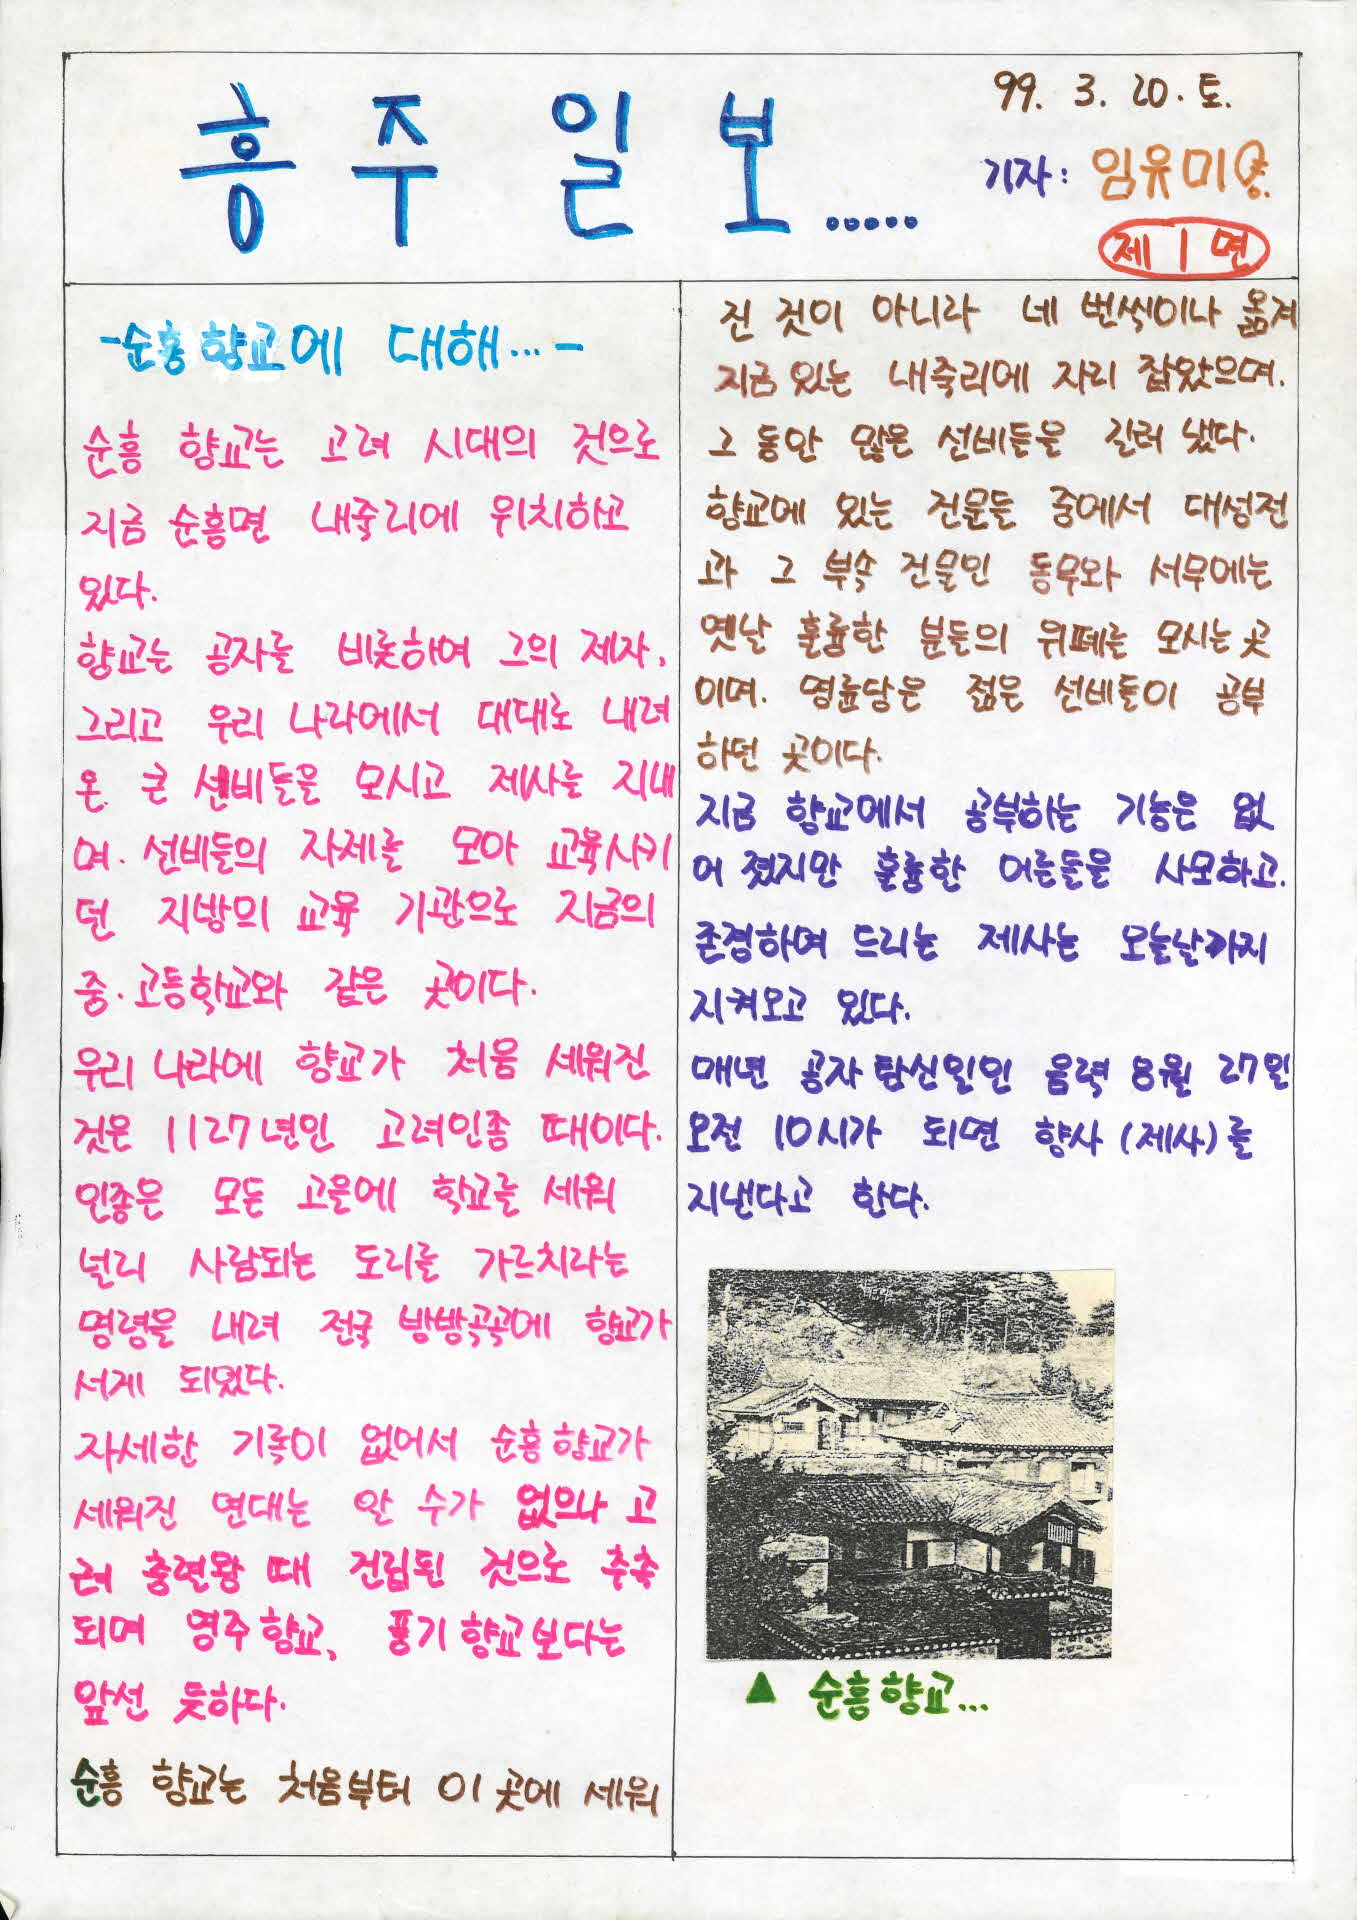 흥주일보.....
99. 3. 20. 토.
기자: 임유미양.
제1면
-순흥향교에 대해...-
순흥 향교는 고려 시대의 것으로
지금 순흥면 내죽리에 위치하고
있다.
향교는 공자를 비롯하여 그의 제자,
그리고 우리 나라에서 대대로 내려
온 큰 선비들을 모시고 제사를 지내
며. 선비들의 자제를 모아 교육시키
던 지방의 교육 기관으로 지금의
중·고등학교와 같은 곳이다.
우리 나라에 향교가 처음 세워진
것은 1127년인 고려인종 때이다.
인종은 모든 고을에 학교를 세워
널리 사람되는 도리를 가르치라는
명령을 내려 전국 방방곡곡에 향교가
서게 되었다.
자세한 기록이 없어서 순흥향교가
세워진 연대는 알 수가 없으나 고
려 충렬왕 때 건립된 것으로 추측
되며 영주향교, 풍기향교보다는
앞선 듯하다.
순흥 향교는 처음부터 이 곳에 세워
진 것이 아니라 네 번씩이나 옮겨
지금 있는 내죽리에 자리 잡았으며.
그 동안 많은 선비들을 길러 냈다.
향교에 있는 건물들 중에서 대성전
과 그 부속 건물인 동무와 서무에는
옛날 훌륭한 분들의 위폐를 모시는 곳
이며. 명륜당은 젊은 선비들이 공부
하던 곳이다.
지금 향교에서 공부하는 기능은 없
어 졌지만 훌륭한 어른들을 사모하고.
존경하며 드리는 제사는 오늘날까지
지켜오고 있다.
매년 공자 탄신일인 음력 8월 27일
오전 10시가 되면 향사 (제사)를
지낸다고 한다.
▲ 순흥향교...